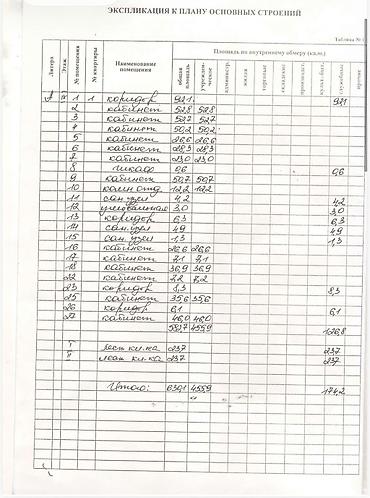 ЭКСПЛИКАЦИЯ К ПЛАНУ ОСНОВНЫХ СТРОЕНИЙ
Таблица №
Литера Этаж № помещения № квартиры Наименование помещения Площадь по внутреннему обмеру (кв.м.)
общая площадь учрежден- ческая администр. жилая торговые складские производст. культ.-быт. служебные прочие
А 1 1 коридор 92,1 92,1
2 кабинет 52,8 52,8
3 кабинет 52,7 52,7
4 кабинет 50,2 50,2
5 кабинет 26,6 26,6
6 кабинет 28,3 28,3
7 кабинет 23,0 23,0
8 шкаф 0,6 0,6
9 кабинет 50,7 50,7
10 комн отд. 12,2 12,2
11 сан узел 4,2 4,2
12 умывальная 3,0 3,0
13 коридор 6,3 6,3
14 сан. узел 4,9 4,9
15 сан. узел 1,3 1,3
16 кабинет 26,6 26,6
17 кабинет 7,1 7,1
18 кабинет 36,9 36,9
22 кабинет 7,2 7,2
23 коридор 8,3 8,3
25 кабинет 35,6 35,6
26 коридор 6,1 6,1
27 кабинет 46,0 46,0
455,9 126,8
I лест кл-ка 23,7 23,7
II лест кл-ка 23,7 23,7
Итого: 630,1 455,9 174,2